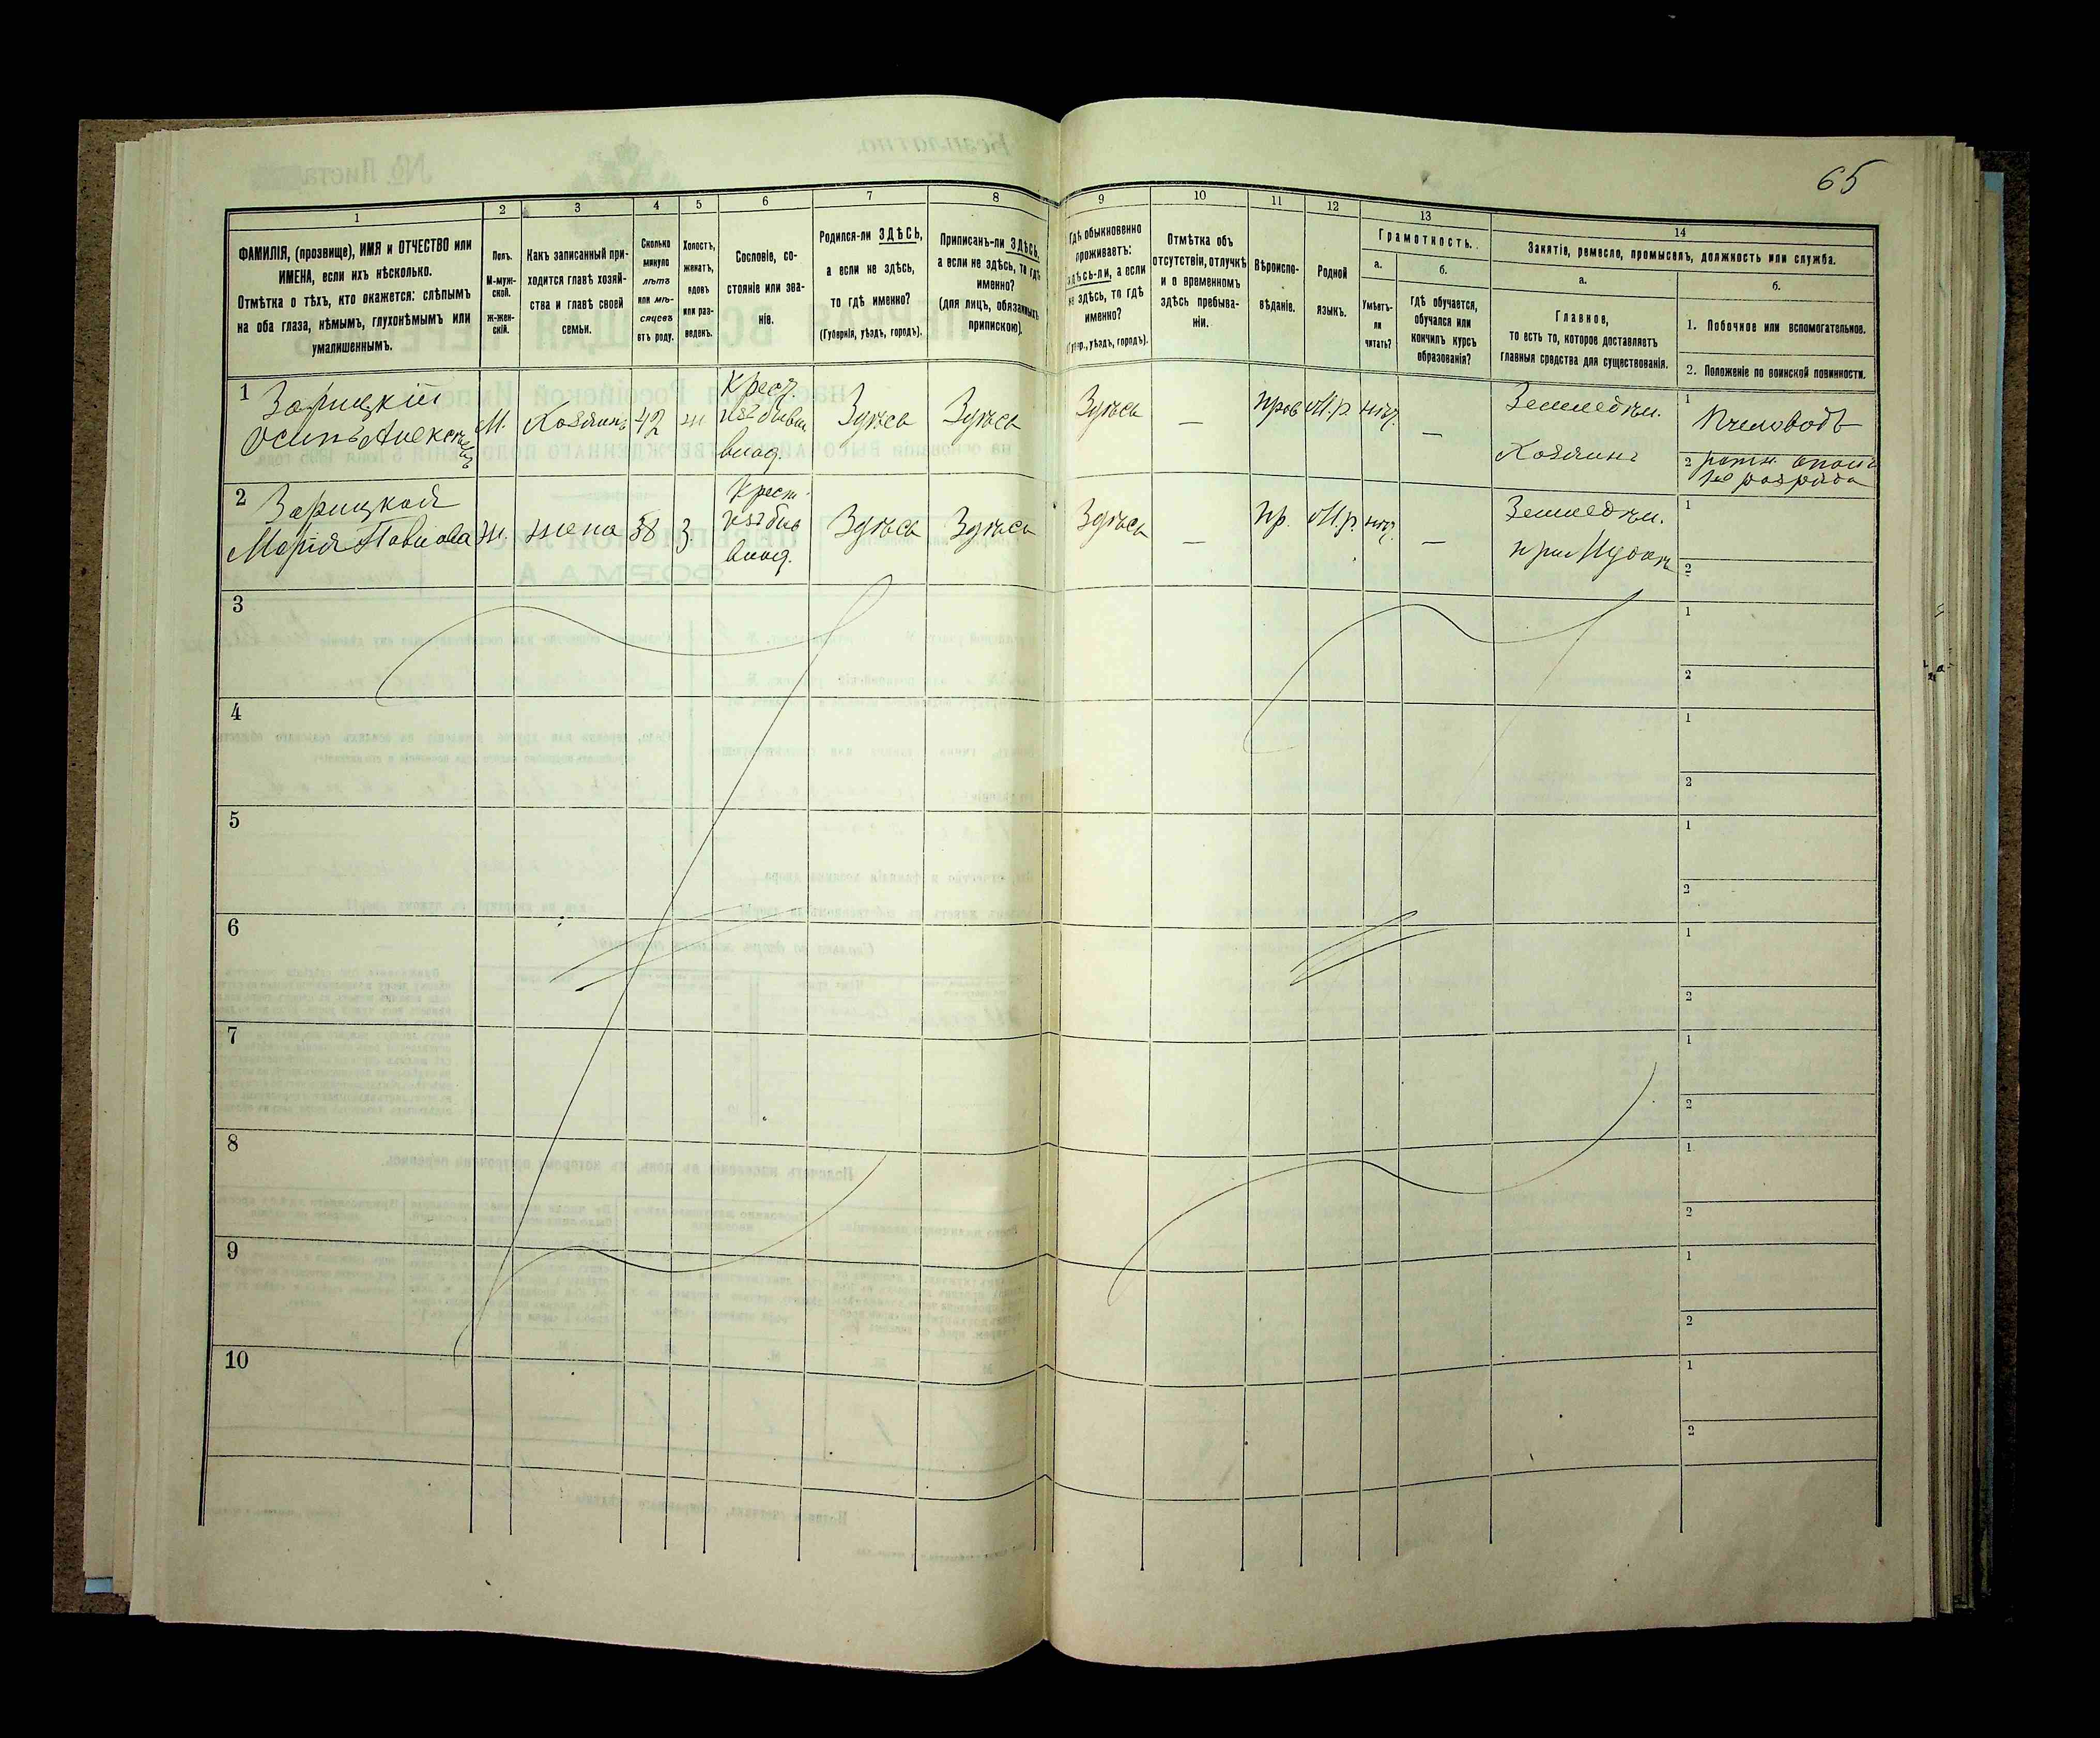 65
1
2
3
4
5
6
7
8
9
10
11
12
13
14
ФАМИЛІЯ, (прозвище), ИМЯ и ОТЧЕСТВО или
ИМЕНА, если ихъ нѣсколько.
Отмѣтка о тѣхъ, кто окажется: слѣпымъ
на оба глаза, нѣмымъ, глухонѣмымъ или
умалишеннымъ.
Полъ.
М-муж-
ской.
ж-жен-
скій.
Какъ записанный при-
ходится главѣ хозяй-
ства и главѣ своей
семьи.
Сколько
минуло
лѣтъ
или мѣ-
сяцевъ
отъ роду.
Холостъ,
женатъ,
вдовъ
или раз-
веденъ.
Сословіе, со-
стояніе или зва-
ніе.
Родился-ли ЗДѢСЬ,
а если не здѣсь,
то гдѣ именно?
(Губернія, уѣздъ, городъ).
Приписанъ-ли ЗДѢСЬ,
а если не здѣсь, то гдѣ
именно?
(для лицъ, обязанныхъ
припискою).
Гдѣ обыкновенно
проживаетъ:
здѣсь-ли, а если
не здѣсь, то гдѣ
именно?
(Губер., уѣздъ, городъ).
Отмѣтка объ
отсутствіи, отлучкѣ
и о временномъ
здѣсь пребыва-
ніи.
Вѣроиспо-
вѣданіе.
Родной
языкъ.
Грамотность.
а.
Умѣетъ-
ли
читать?
б.
гдѣ обучается,
обучался или
кончилъ курсъ
образованія?
Занятіе, ремесло, промыселъ, должность или служба.
а.
Главное,
то есть то, которое доставляетъ
главныя средства для существованія.
б.
1. Побочное или вспомогательное.
2. Положеніе по воинской повинности.
1
Зарицкій
Осипъ
М.
Хозяинъ
42
ж
Крест.
изъ бывш
влад.
Здѣсь
Здѣсь
Здѣсь
—
прав
М.р.
нѣт.
—
Земледѣл.
Хозяинъ
1
Пчеловодъ
2
ратн. ополч
1го разряда
2
Зарицкой
Марія Павлова
ж.
жена
38
З.
Крест.
изъ быв
влад.
Здѣсь
Здѣсь
Здѣсь
—
пр.
М.р.
нѣт.
—
Земледѣл.
при Мужѣ
1
2
3
1
2
4
1
2
5
1
2
6
1
2
7
1
2
8
1
2
9
1
2
10
1
2